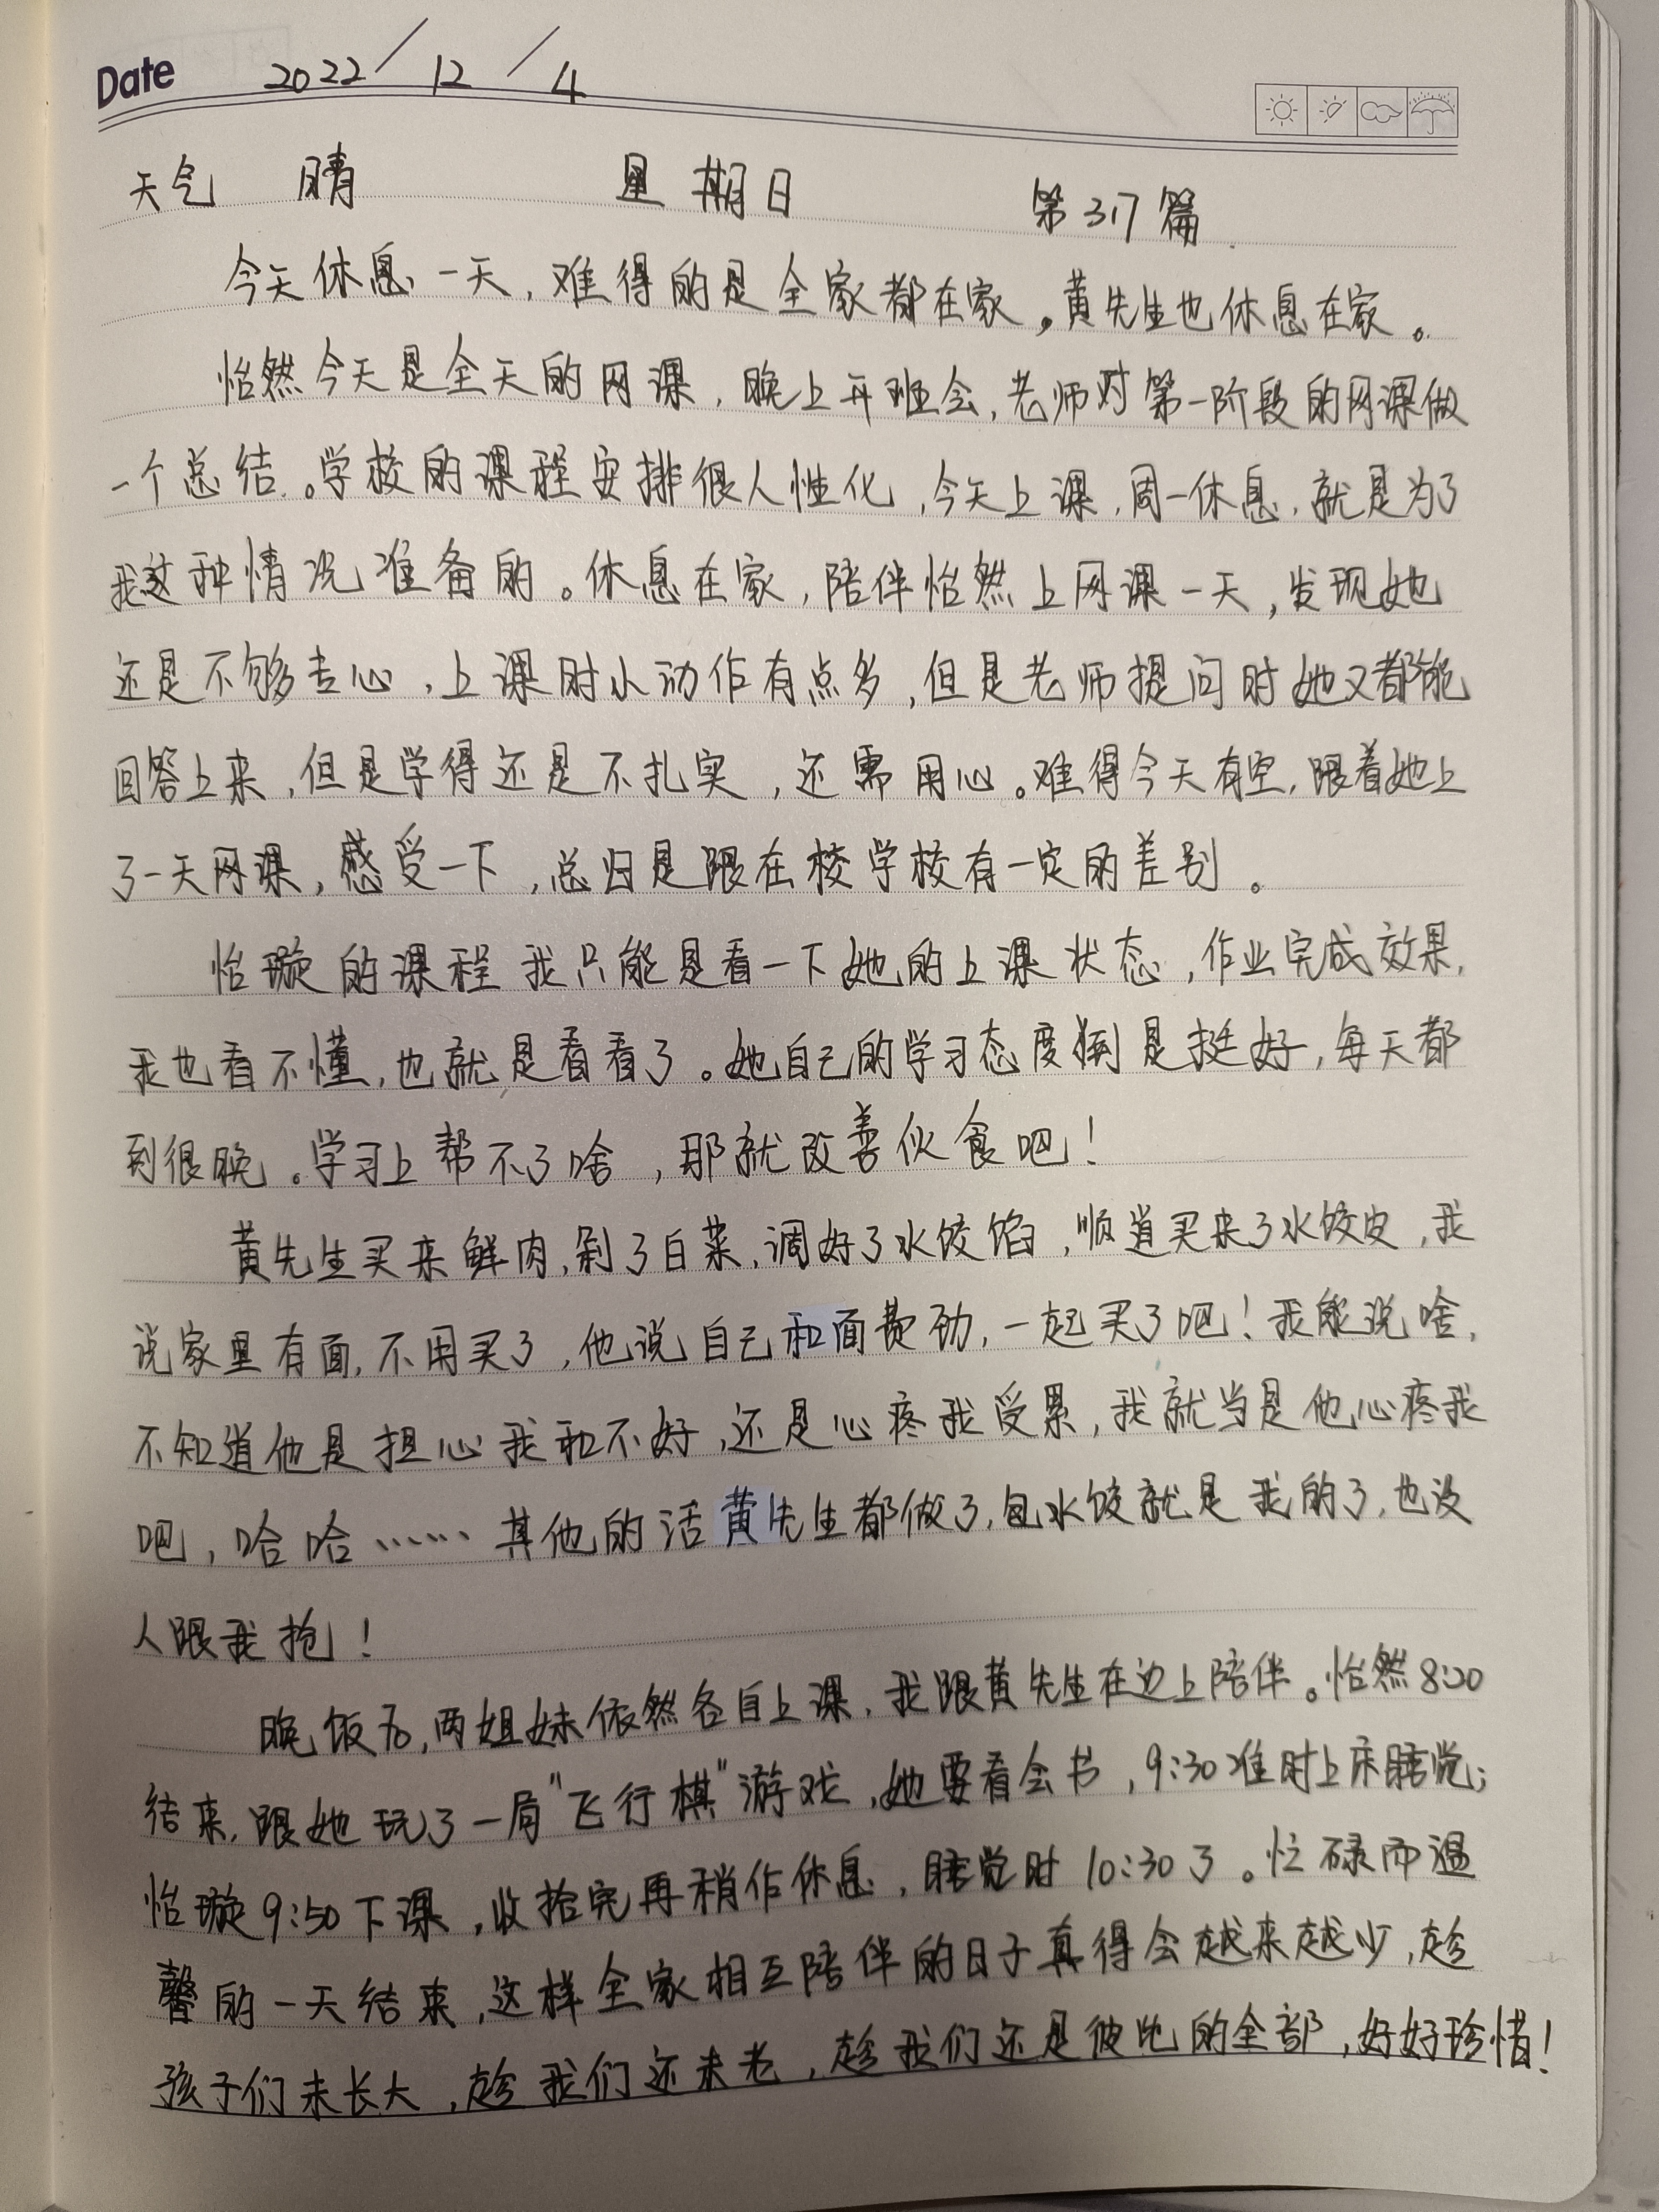 Date 2022/12/4
天气 晴 星期日 第317篇
今天休息一天，难得的是全家都在家。黄先生也休息在家。
怡然今天是全天的网课，晚上开班会，老师对第一阶段的网课做
一个总结。学校的课程安排很人性化，今天上课，周一休息，就是为了
我这种情况准备的。休息在家，陪伴怡然上网课一天，发现她
还是不够专心，上课时小动作有点多，但是老师提问时她又都能
回答上来，但是学得还是不扎实，还需用心。难得今天有空，跟着她上
了一天网课，感受一下，总归是跟在校学校有一定的差别。
怡璇的课程我只能是看一下她的上课状态，作业完成效果，
我也看不懂，也就是看看了。她自己的学习态度倒是挺好，每天都
到很晚。学习上帮不了啥，那就改善伙食吧！
黄先生买来鲜肉，剁了白菜，调好了水饺馅，顺道买来了水饺皮，我
说家里有面，不用买了，他说自己和面费劲，一起买了吧！我能说啥，
不知道他是担心我和不好，还是心疼我受累，我就当是他心疼我
吧，哈哈……其他的活黄先生都做了，包水饺就是我的了，也没
人跟我抢！
晚饭后，两姐妹依然各自上课，我跟黄先生在边上陪伴。怡然8:20
结束，跟她玩了一局“飞行棋”游戏，她要看会书，9:30准时上床睡觉；
怡璇9:50下课，收拾完再稍作休息，睡觉时10:30了。忙碌而温
馨的一天结束，这样全家相互陪伴的日子真得会越来越少，趁
孩子们未长大，趁我们还未老，趁我们还是彼此的全部，好好珍惜！